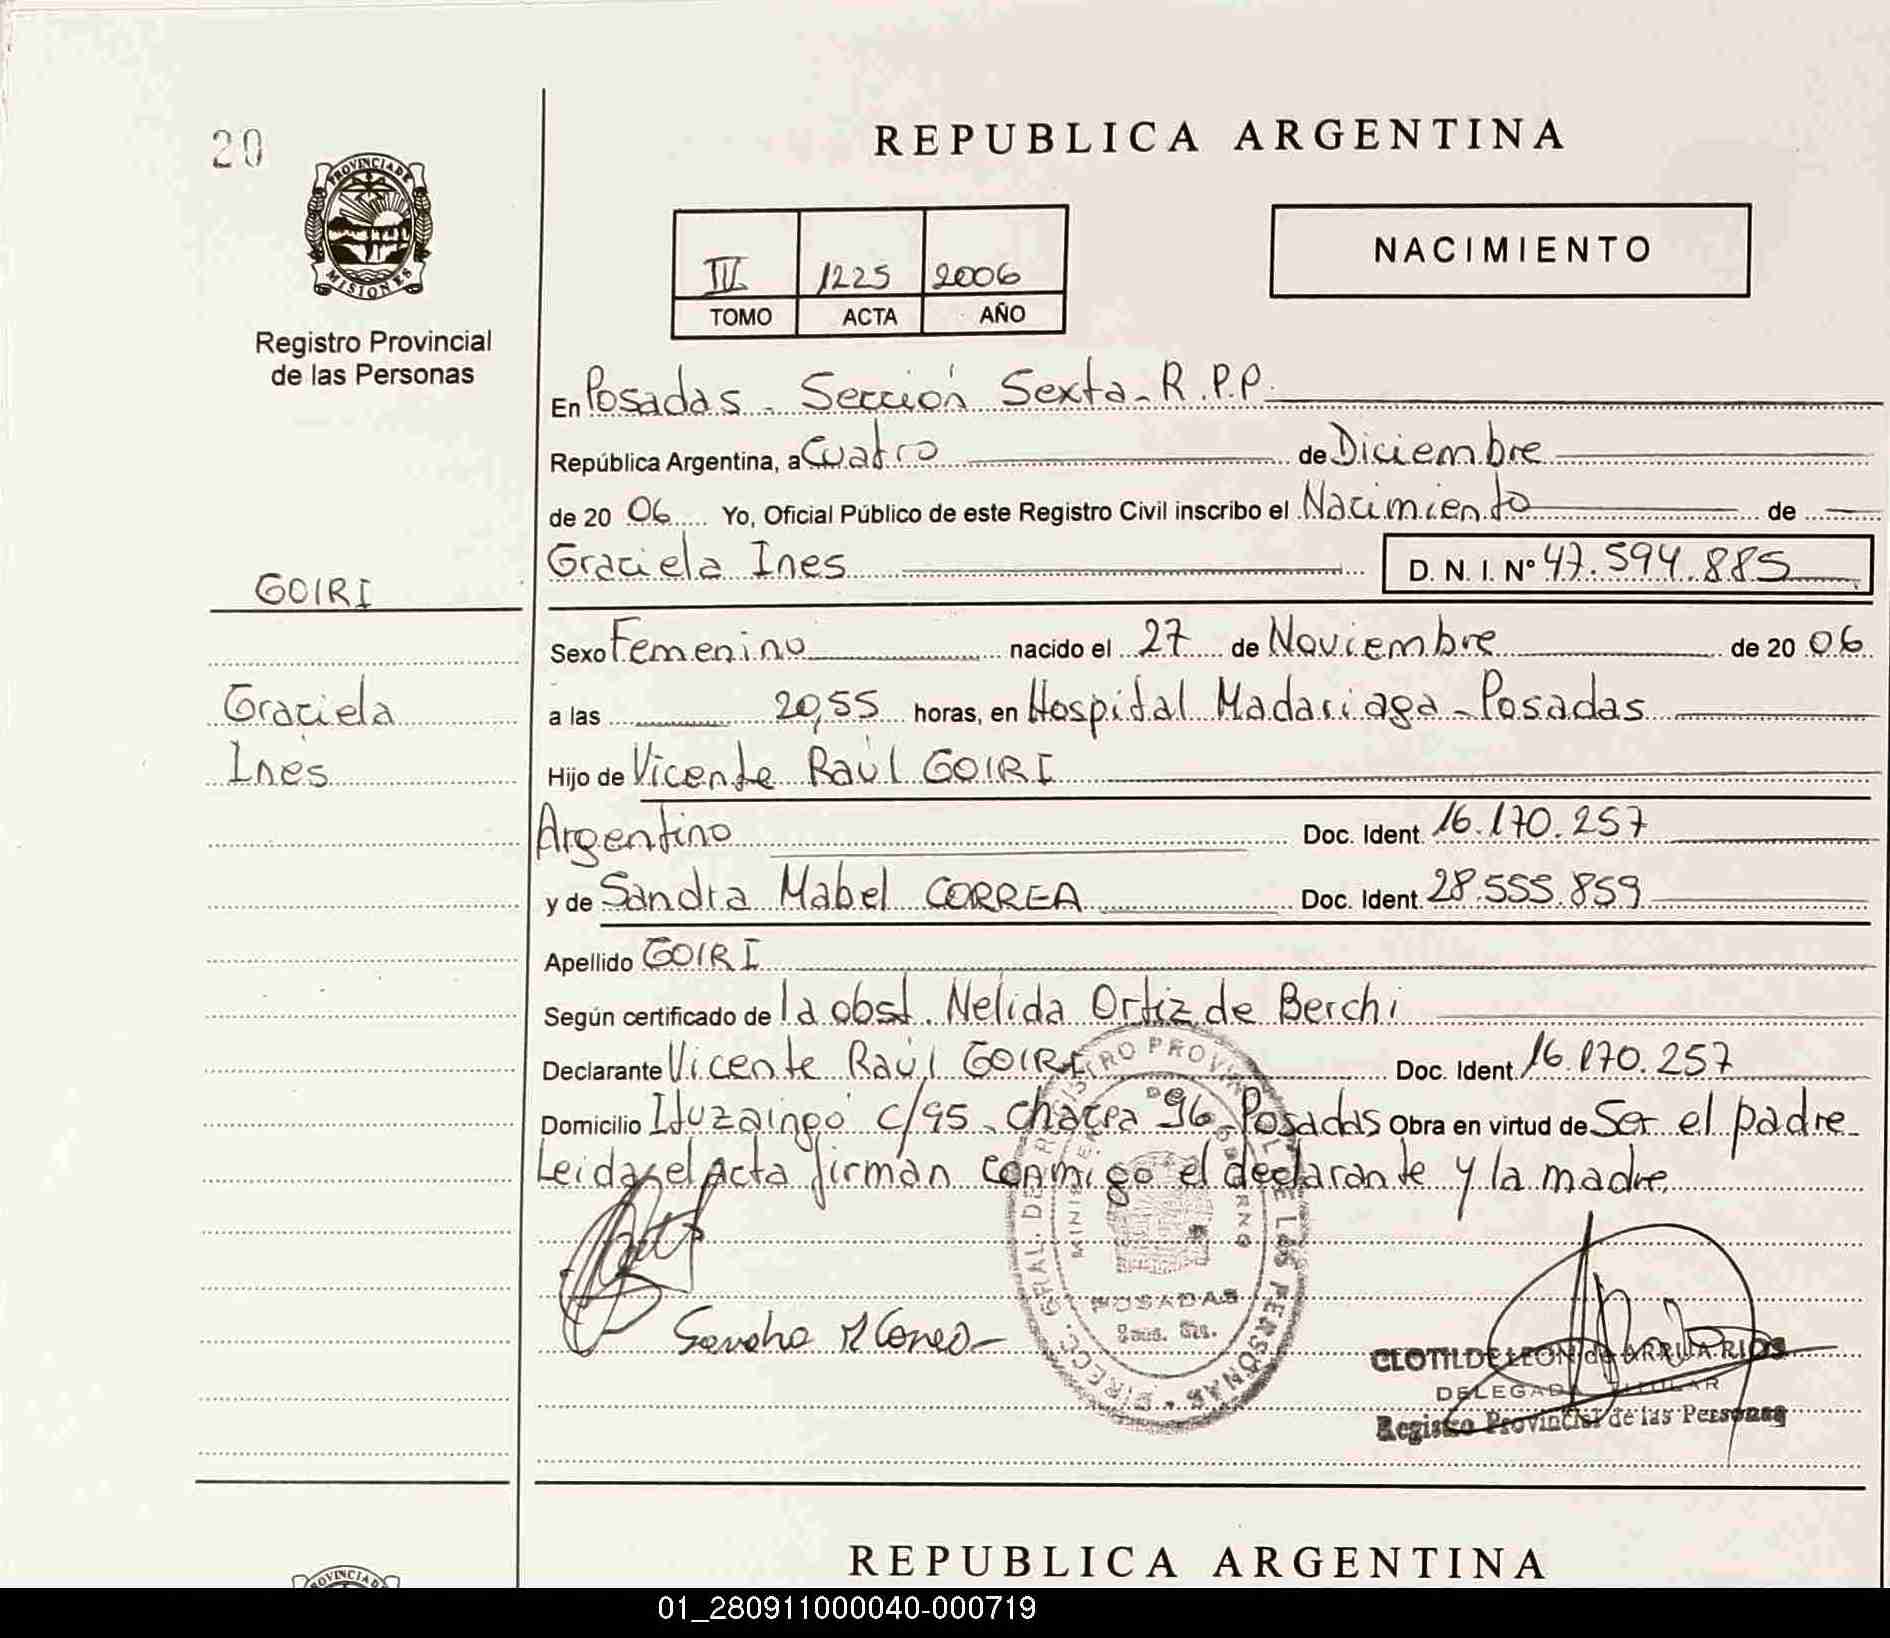 20
PROVINCIA DE
MISIONES
Registro Provincial
de las Personas
REPUBLICA ARGENTINA
NACIMIENTO
III 1225 2006
TOMO ACTA AÑO
En Posadas - Sección Sexta - R.P.P.
República Argentina, a Cuatro de Diciembre
de 20 06 Yo, Oficial Público de este Registro Civil inscribo el Nacimiento de
Graciela Ines D. N. I. Nº 47.594.885
GOIRI
Sexo Femenino nacido el 27 de Noviembre de 20 06
Graciela
a las 20,55 horas, en Hospital Madariaga - Posadas
Ines
Hijo de Vicente Raúl GOIRI
Argentino Doc. Ident. 16.170.257
y de Sandra Mabel CORREA Doc. Ident. 28.555.859
Apellido GOIRI
Según certificado de la obst. Nelida Ortiz de Berchi
Declarante Vicente Raúl GOIRI Doc. Ident. 16.170.257
Domicilio Ituzaingó c/95 - chacra 96 - Posadas Obra en virtud de Ser el padre -
Leida el Acta firman conmigo el declarante y la madre
DIRECC. GRAL. DEL REGISTRO PROVINCIAL DE LAS PERSONAS
POSADAS
CLOTILDE LEON de ARRUA RIOS
DELEGADA TITULAR
Registro Provincial de las Personas
REPUBLICA ARGENTINA
01_280911000040-000719